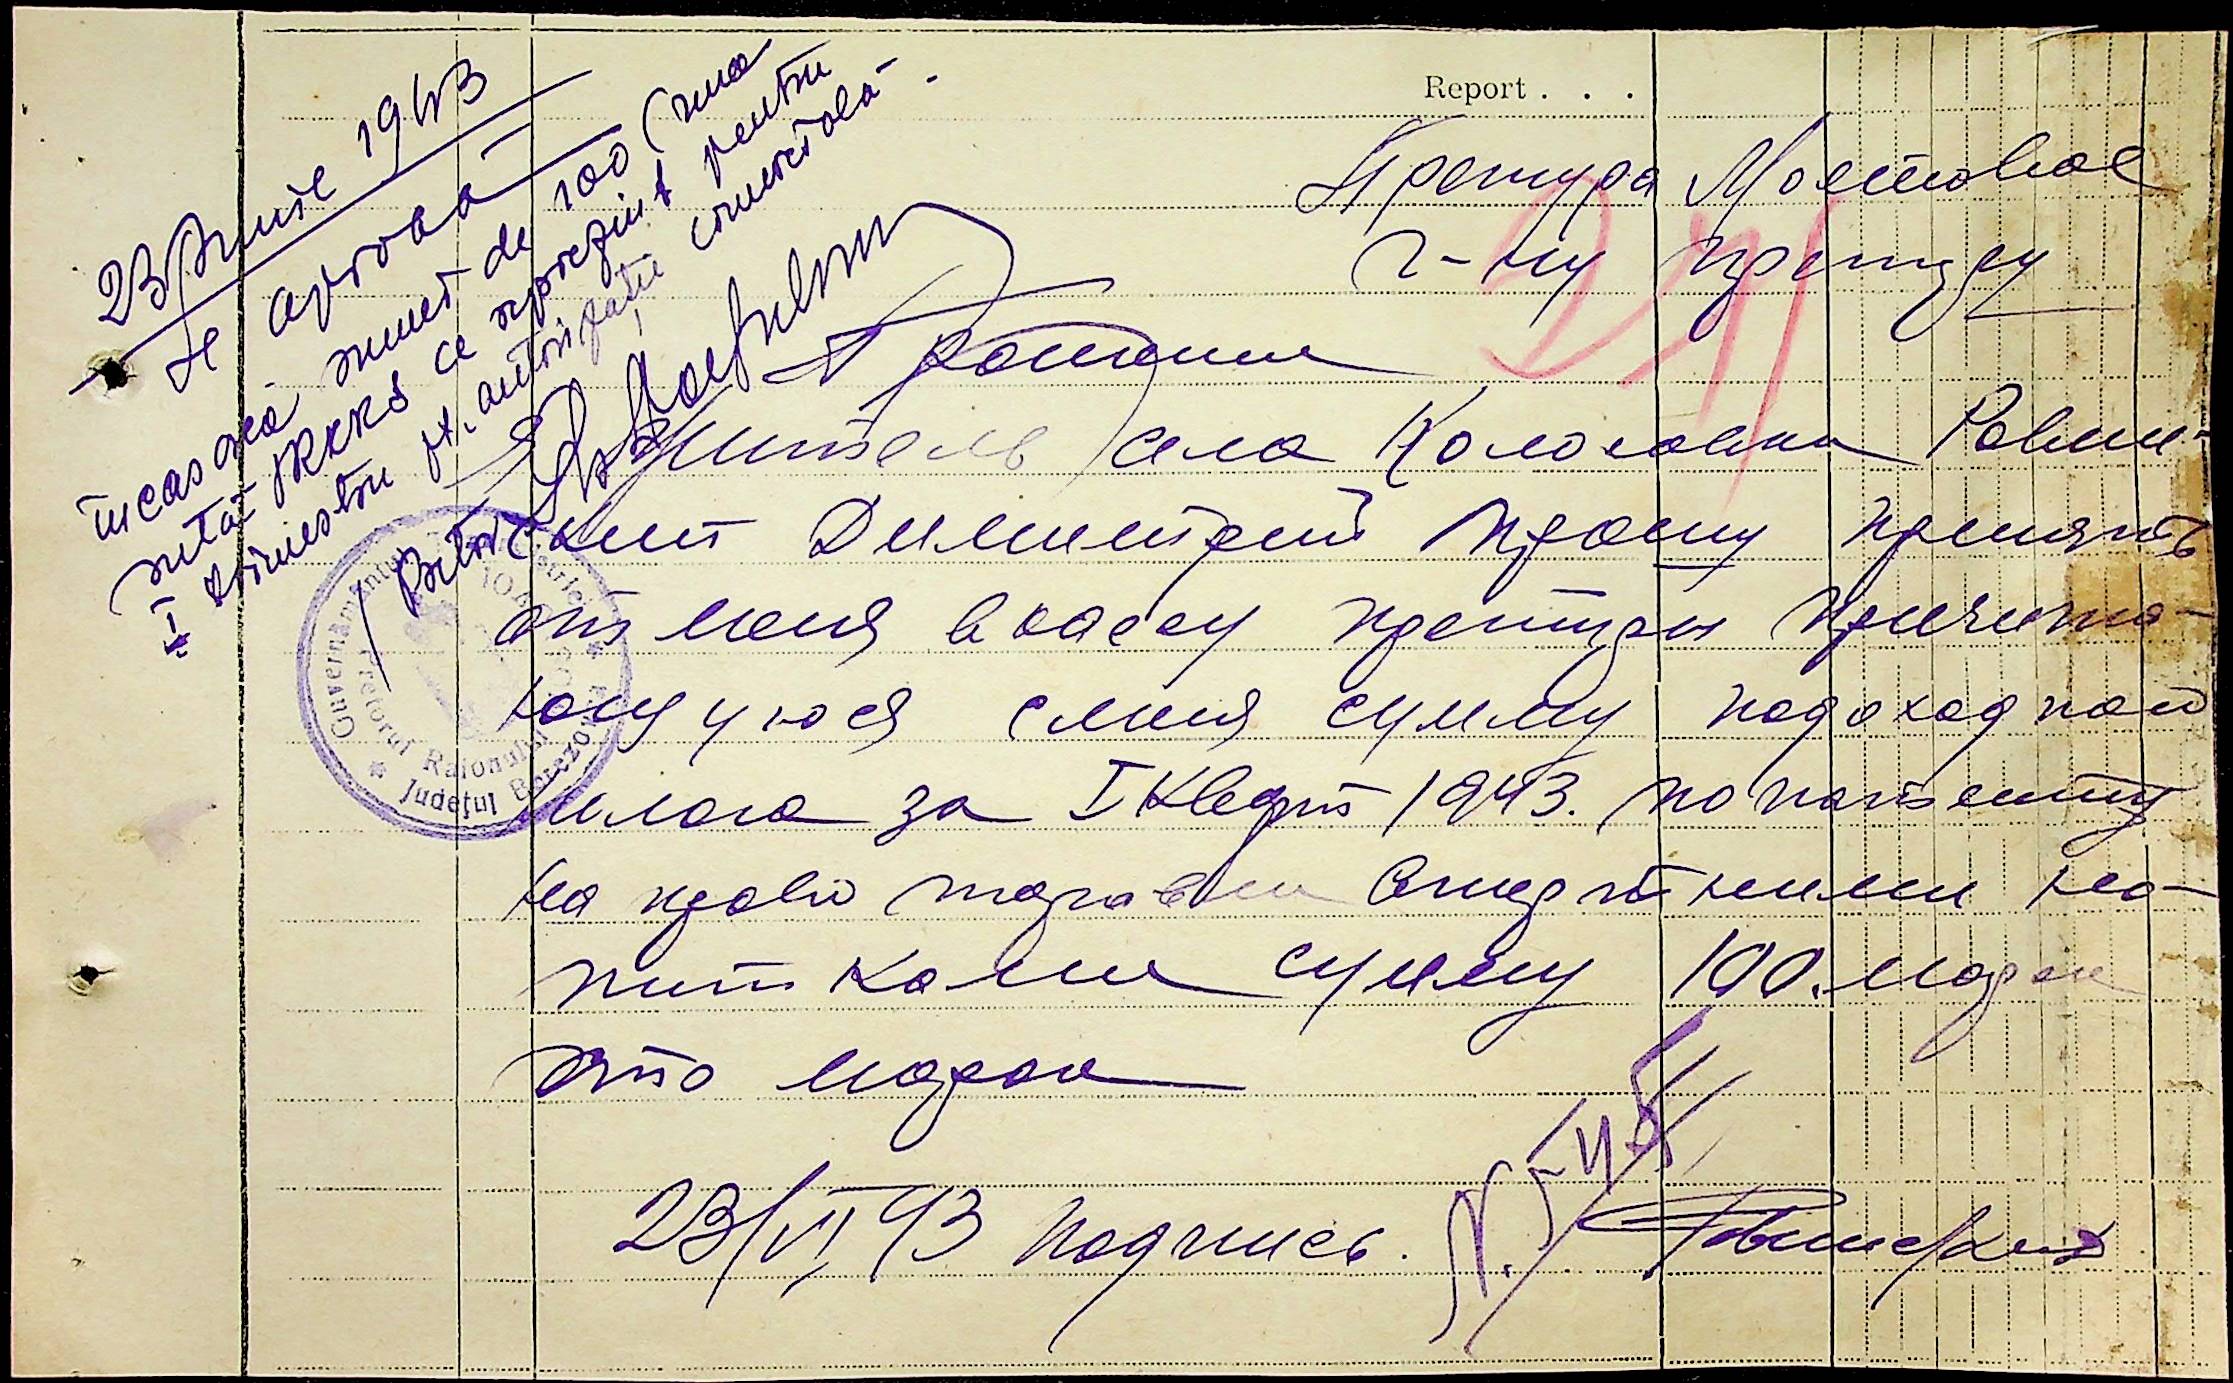 Report . . .
Претура Мостовое
г-ну претору
23 Iunie 1943
Se aprobă
încasarea sumei de 100 (una
sută) RKKS ce reprezint pentru
I trimestru pt. autorizație comercială.
Pretor
Прошение
Я житель села Колосовки Ровин-
ский Димитрий прошу принять
от меня в кассу претуры причита-
ющуюся с меня сумму подоходного
налога за I Кварт 1943. по патенту
на право торговли спиртными на-
питками сумму 100. марок
сто марок
23/VI 43 подпись.
Guvernământul Transnistriei
Pretorul Raionului
Județul Berezovca